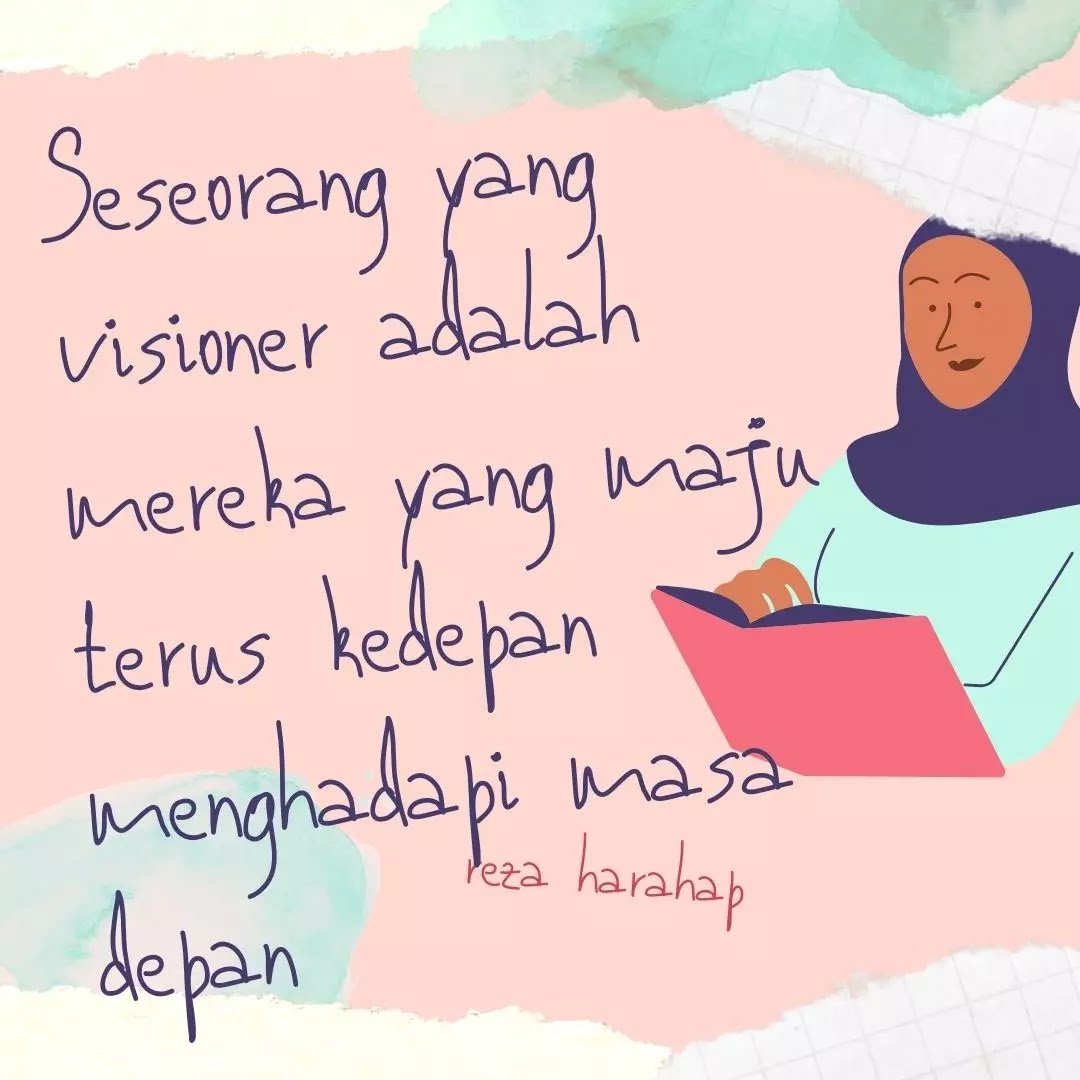 Seseorang yang
visioner adalah
mereka yang maju
terus kedepan
menghadapi masa
depan
reza harahap